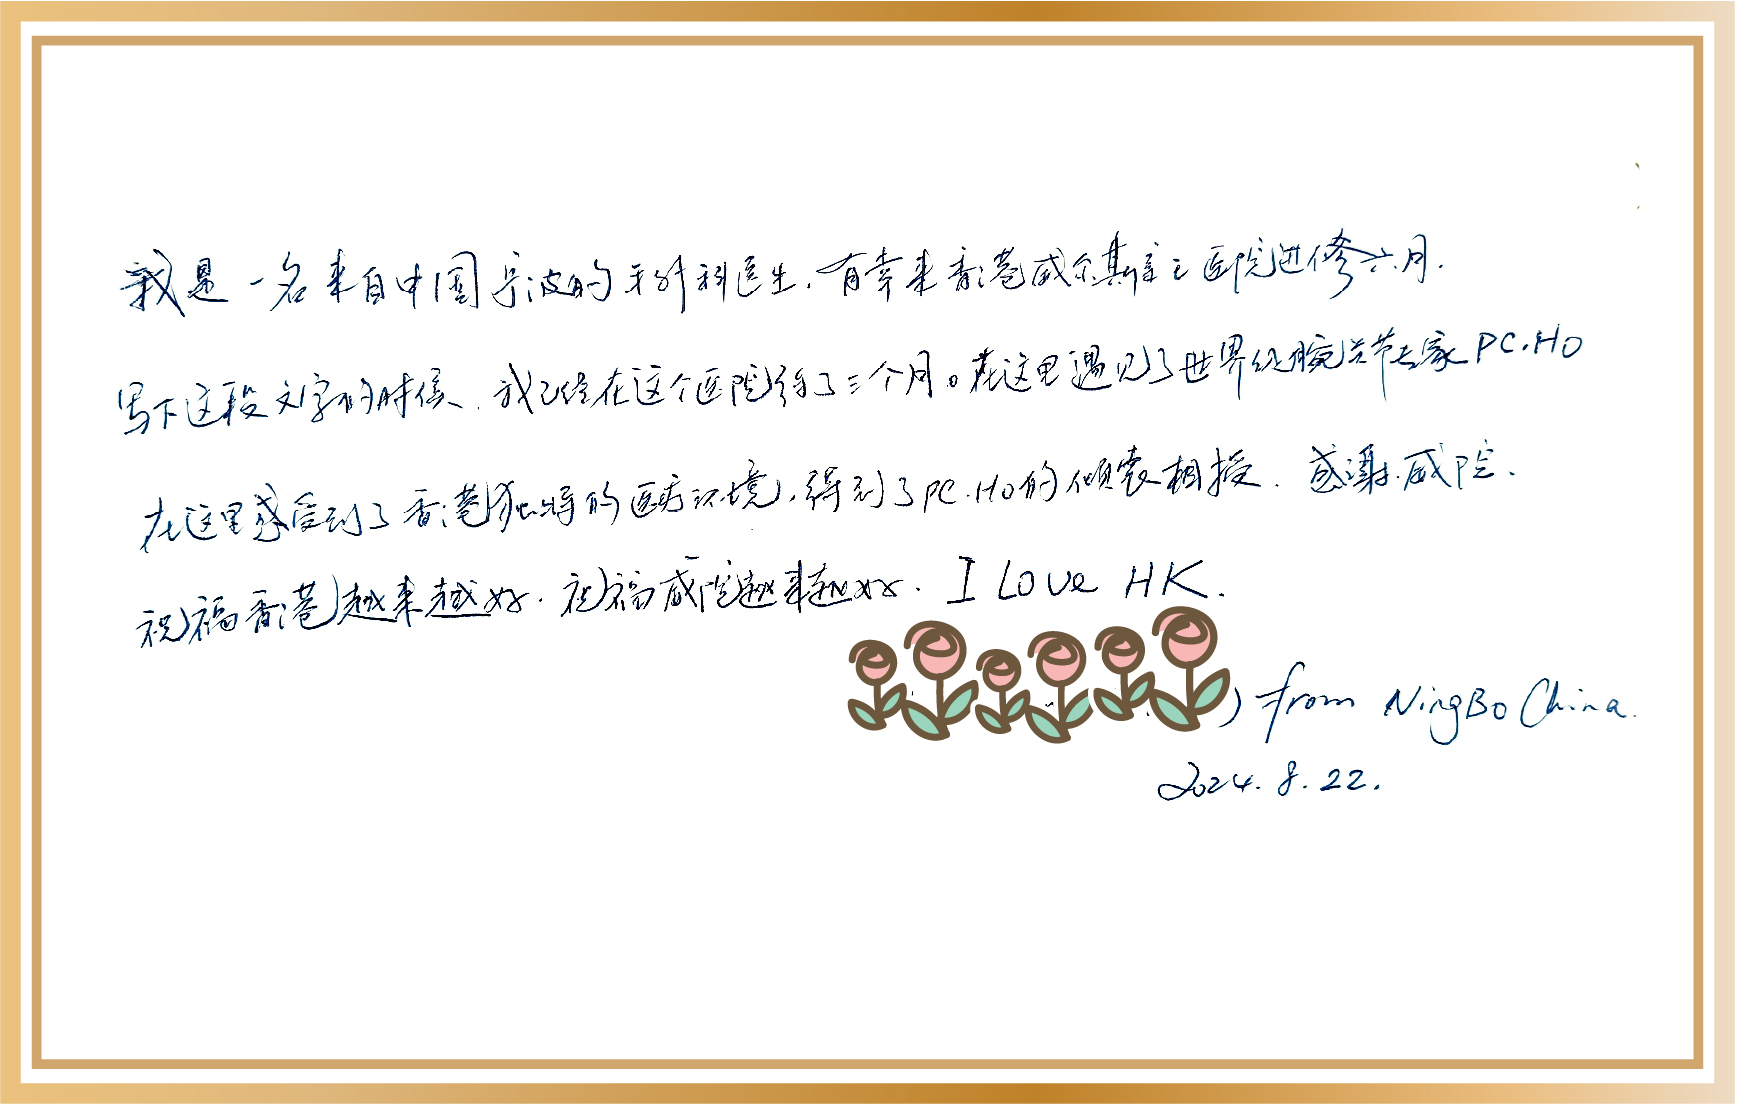 我是一名来自中国宁波的手外科医生，有幸来香港威尔斯亲王医院进修六月.
写下这段文字的时候，我已经在这个医院待了三个月。在这里遇见了世界级腕关节专家PC.HO
在这里感受到了香港独特的医疗环境，得到了PC.Ho的倾囊相授. 感谢威院.
祝福香港越来越好. 祝福威院越来越好. I Love HK.
) from NingBo China.
2024.8.22.